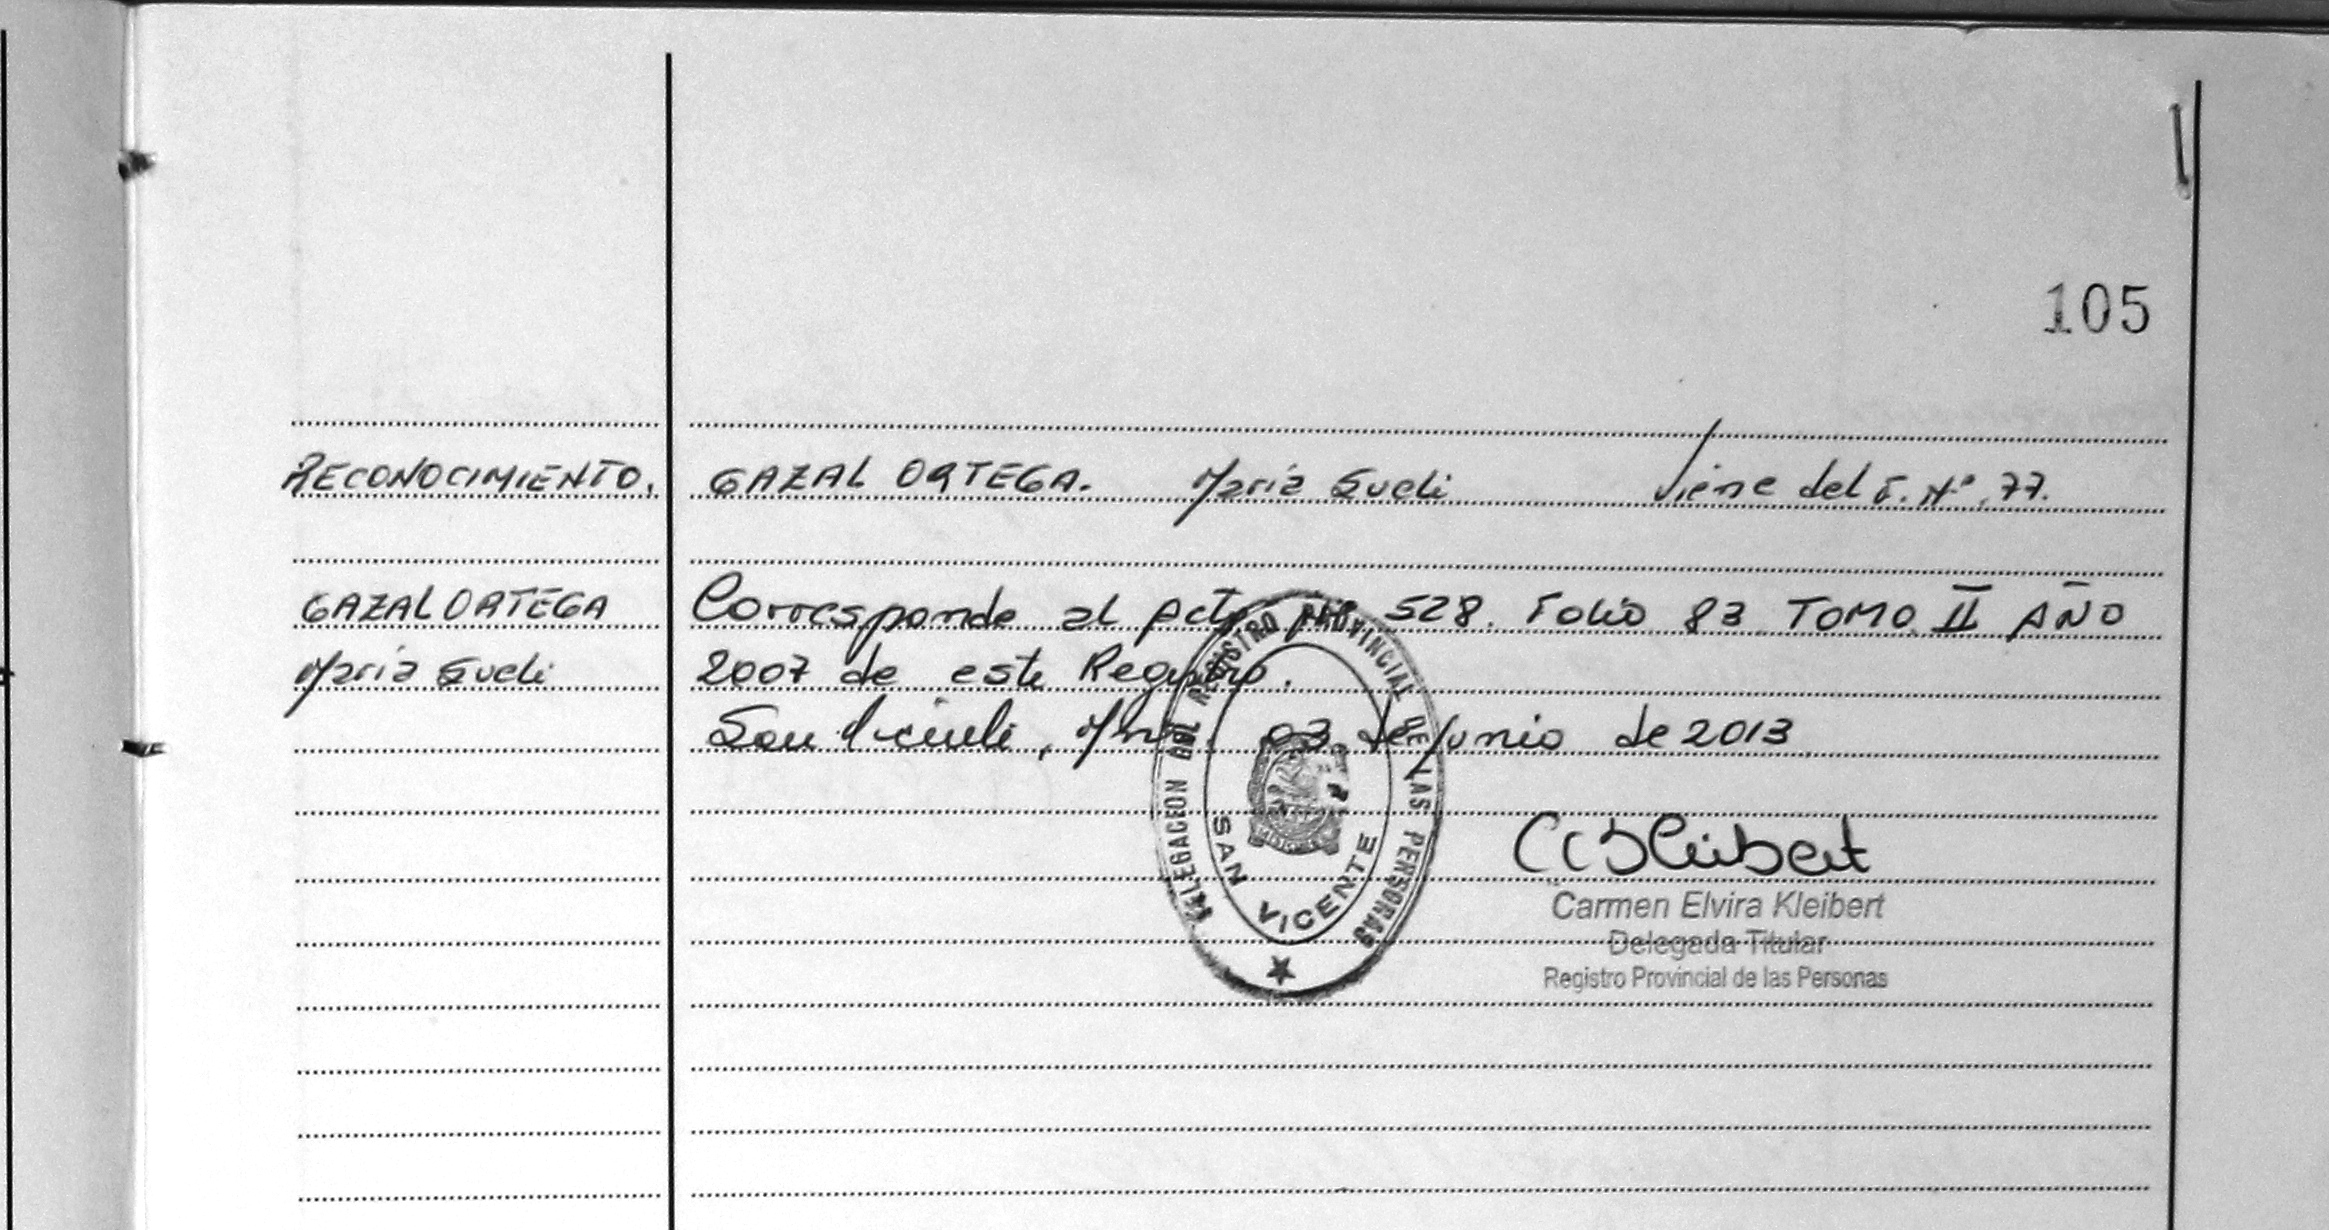 105
RECONOCIMIENTO. GAZAL ORTEGA. Maria Sueli Viene del F. Nº 77.
GAZAL ORTEGA Corresponde al Acta Nº 528. Folio 83 TOMO II AÑO
Maria Sueli 2007 de este Registro.
San Vicente, Mnes. 03 de Junio de 2013
DELEGACION DEL REGISTRO PROVINCIAL DE LAS PERSONAS
SAN VICENTE
Carmen Elvira Kleibert
Delegada Titular
Registro Provincial de las Personas